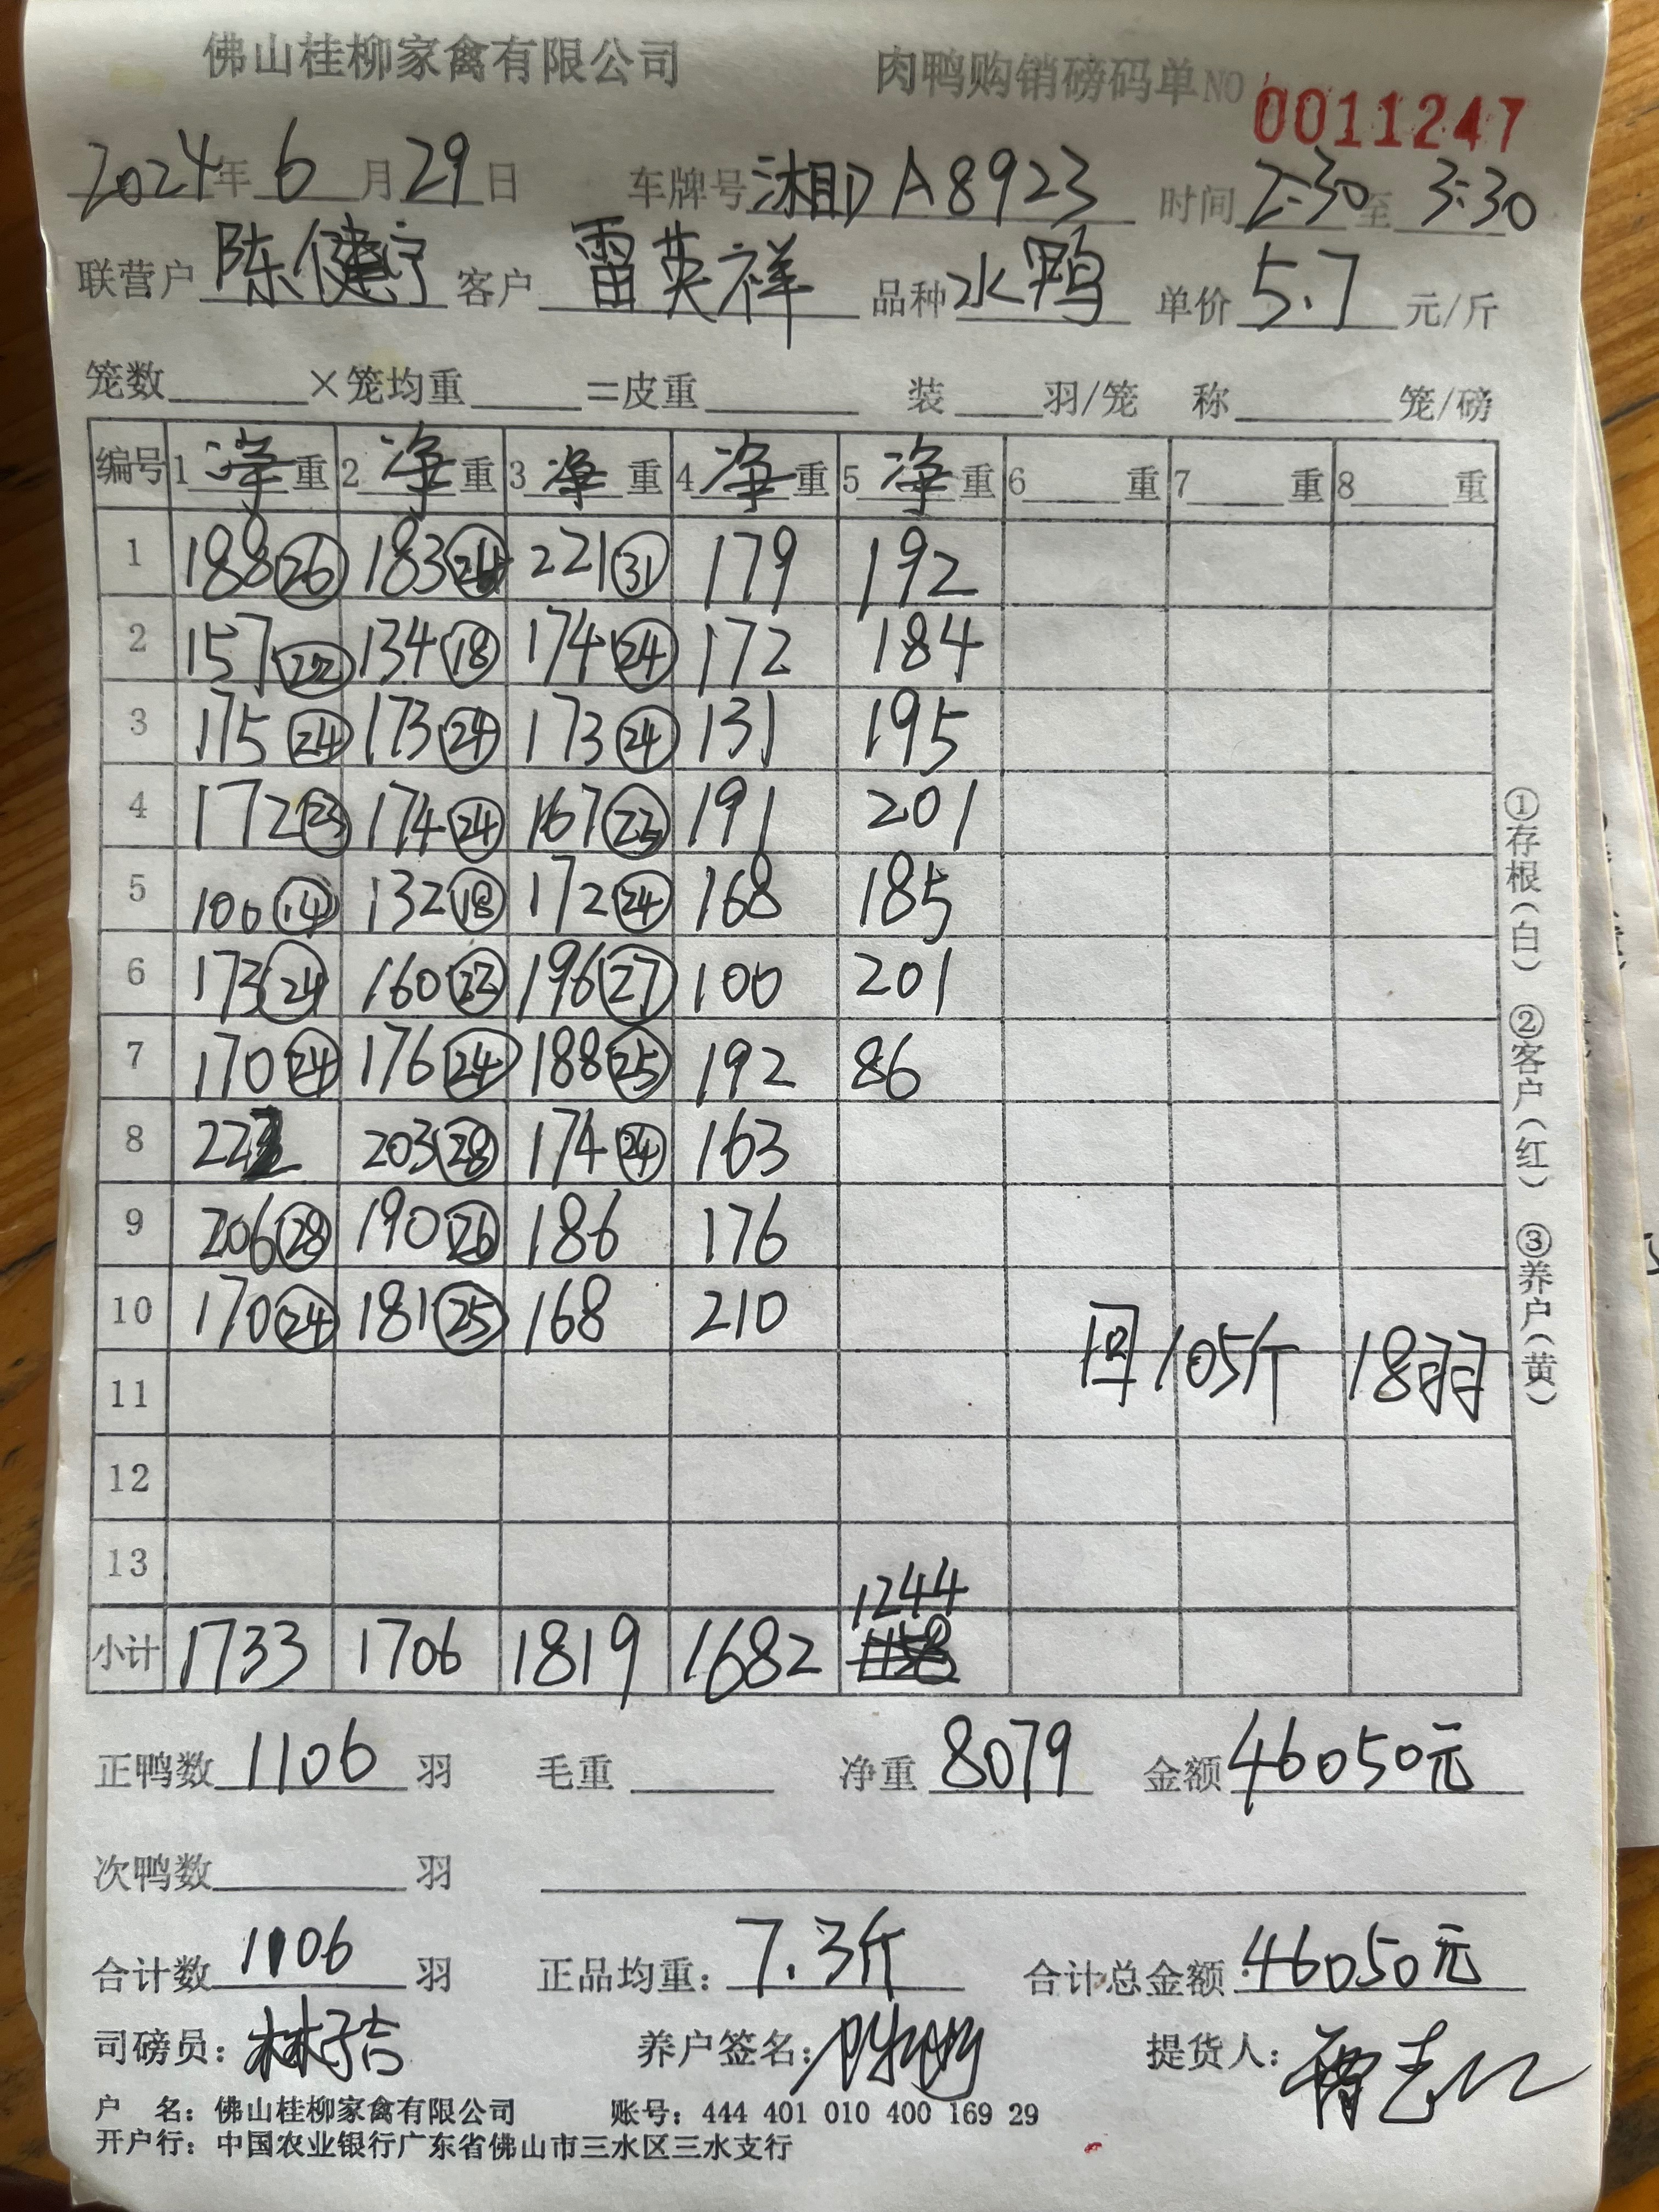 佛山桂柳家禽有限公司 肉鸭购销磅码单NO 0011247
2024年6月29日 车牌号湘D A8923 时间2:30至3:30
联营户陈健宁 客户雷英祥 品种水鸭 单价5.7元/斤
笼数______×笼均重_____=皮重______ 装____羽/笼 称______笼/磅
编号 1净重 2净重 3净重 4净重 5净重 6____重 7____重 8____重
1 188㉖ 183 221㉛ 179 192
2 157㉒ 134⑱ 174㉔ 172 184
3 175㉔ 173㉔ 173㉔ 131 195
4 172㉓ 174㉔ 167㉓ 191 201
5 100⑭ 132⑱ 172㉔ 168 185
6 173㉔ 160㉒ 196㉗ 100 201
7 170㉔ 176㉔ 188㉕ 192 86
8 222 203㉘ 174㉔ 163
9 206㉘ 190㉖ 186 176
10 170㉔ 181㉕ 168 210
回105斤 18羽
11
12
13
1244
小计 1733 1706 1819 1682 1158
①存根(白) ②客户(红) ③养户(黄)
正鸭数1106羽 毛重______ 净重8079 金额46050元
次鸭数______羽
合计数1106羽 正品均重：7.3斤 合计总金额：46050元
司磅员：林子吉 养户签名： 提货人：
户 名：佛山桂柳家禽有限公司 账号：444 401 010 400 169 29
开户行：中国农业银行广东省佛山市三水区三水支行